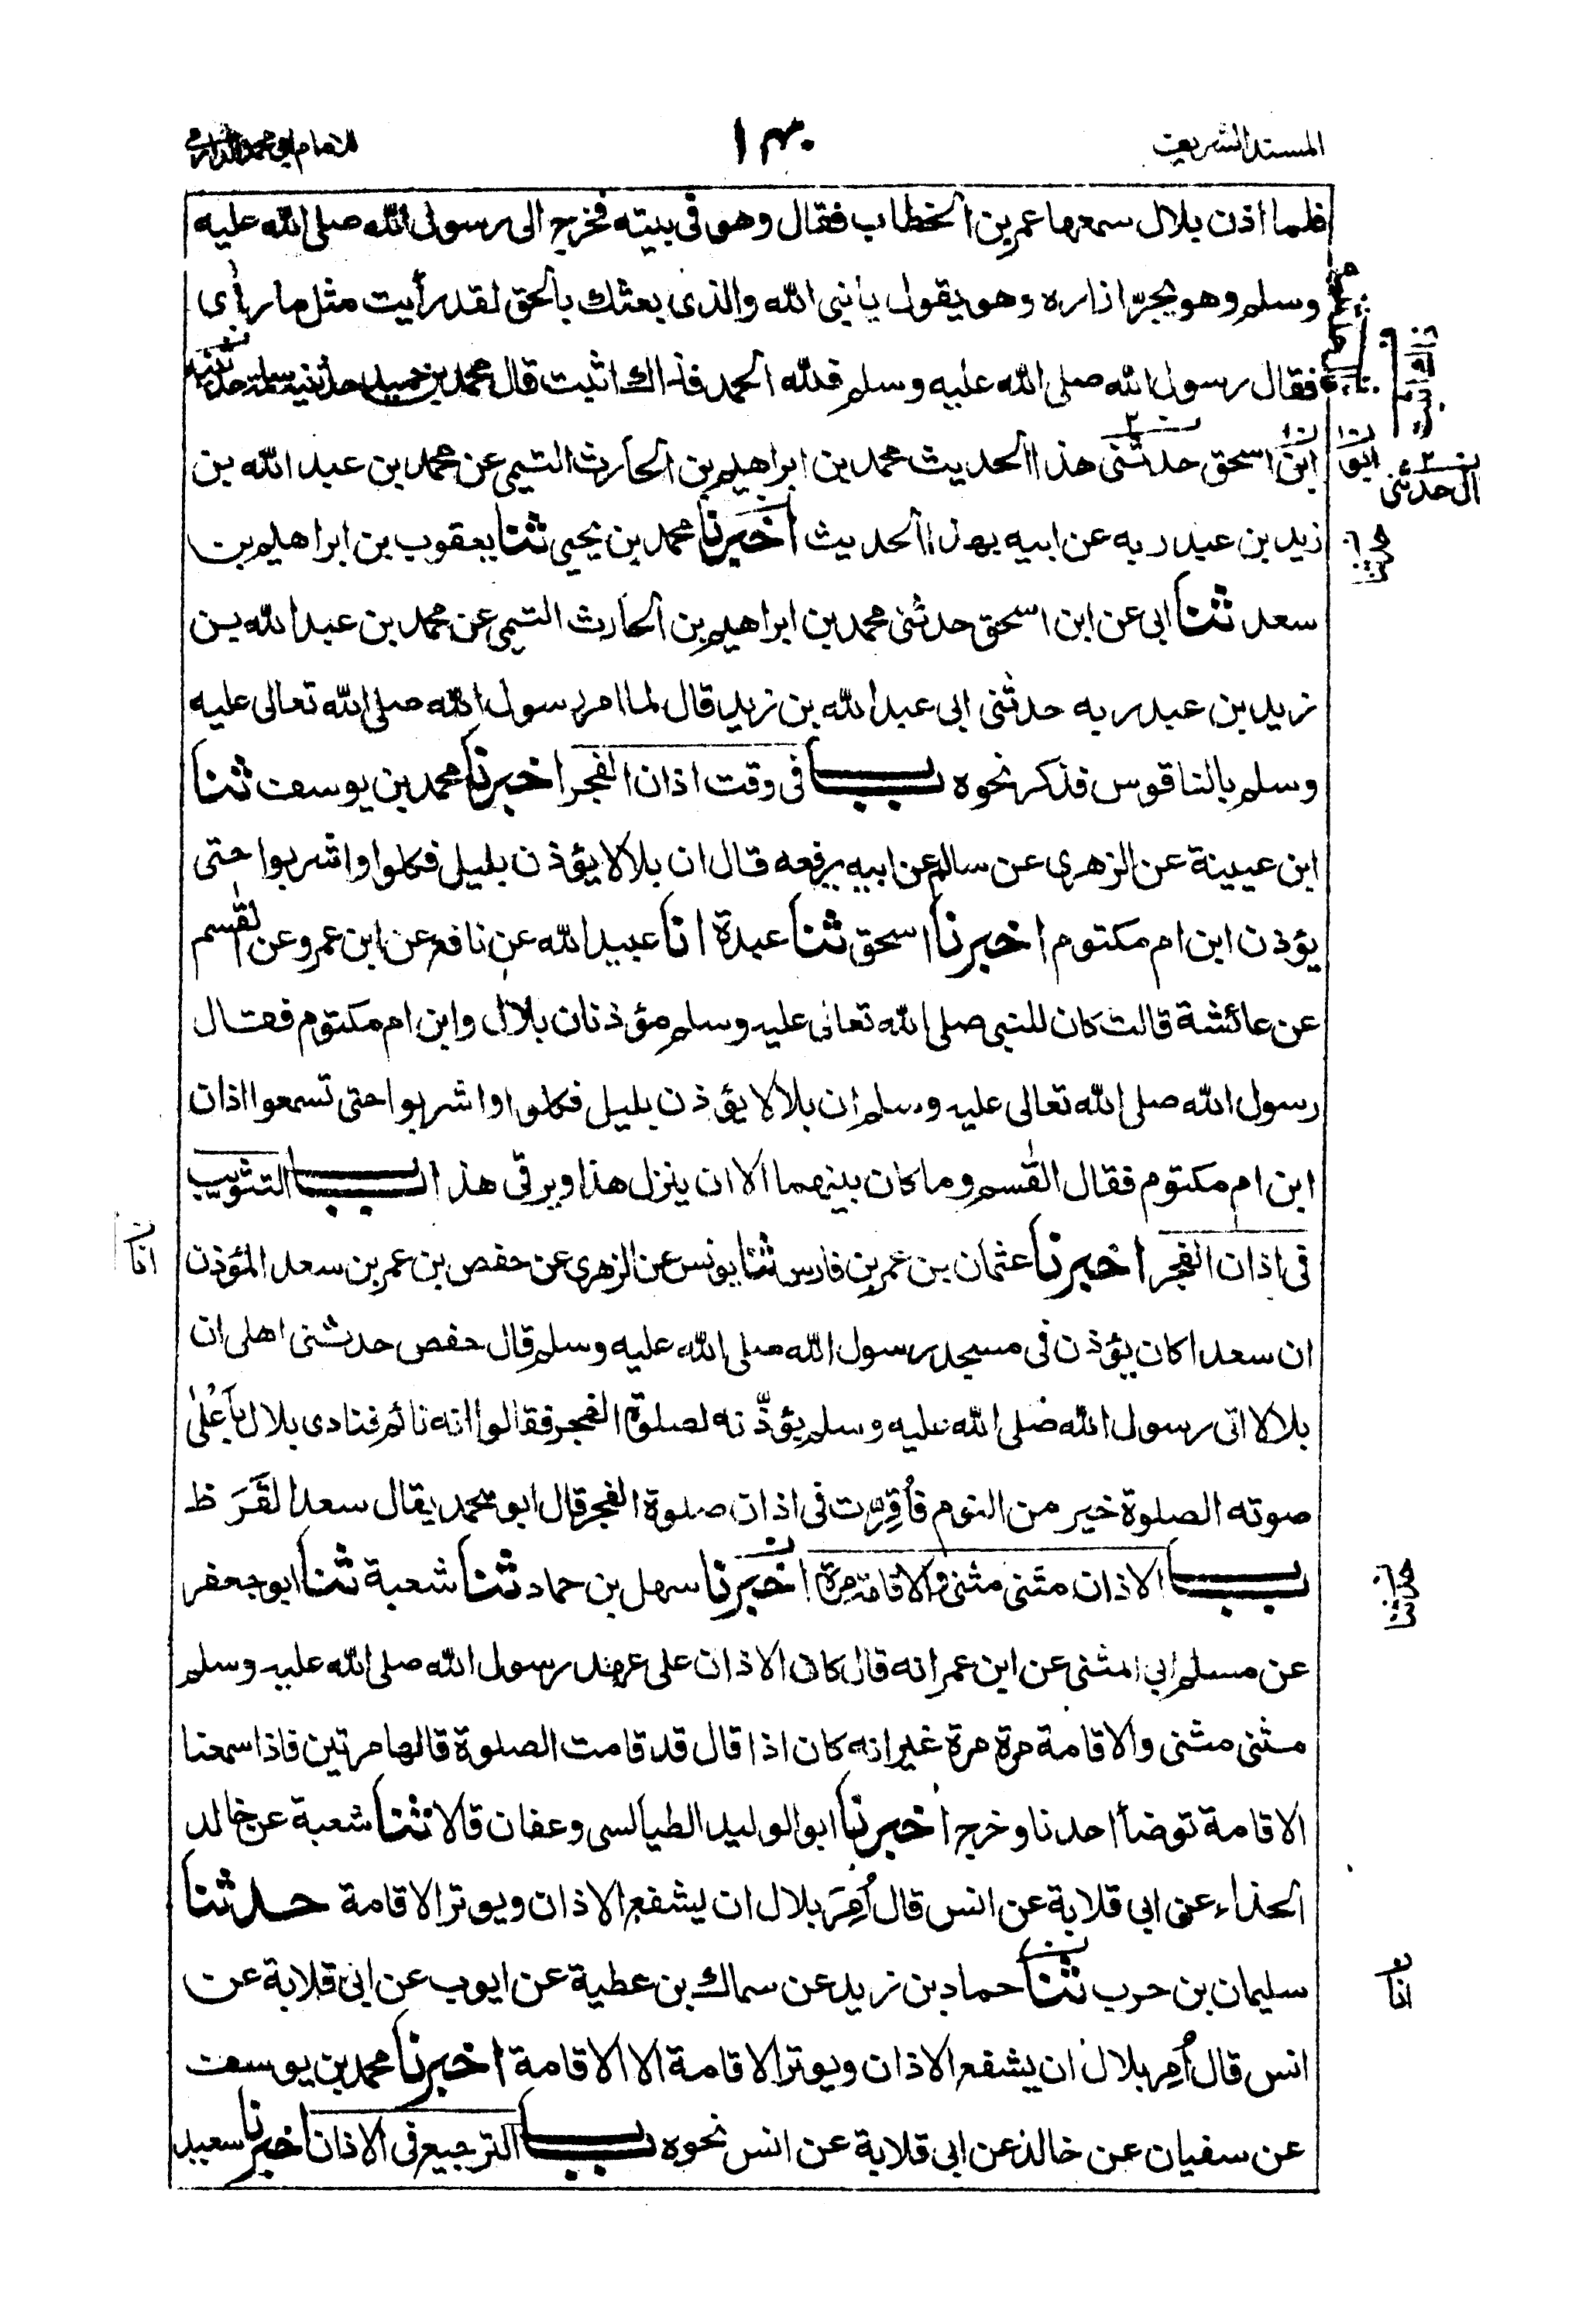 المسند الشريف
١٤٠
للامام ابي محمد الدارمي
فلما اذن بلال سمعها عمر بن الخطاب فقال وهو في بيته فخرج الى رسول الله صلى الله عليه
وسلم وهو يجرّ ازاره وهو يقول يا نبي الله والذى بعثك بالحق لقد رأيت مثل ما رأى
فقال رسول الله صلى الله عليه وسلم فلله الحمد فذاك اثبت قال محمد بن حميد حدثنيه سلمة حدثنيه
ابن اسحق حدثنى هذا الحديث محمد بن ابراهيم بن الحارث التيمى عن محمد بن عبد الله بن
زيد بن عبد ربه عن ابيه بهذا الحديث اخبرنا محمد بن يحيى ثنا يعقوب بن ابراهيم بن
سعد ثنا ابى عن ابن اسحق حدثنى محمد بن ابراهيم بن الحارث التيمى عن محمد بن عبد الله بن
زيد بن عبد ربه حدثنى ابى عبد الله بن زيد قال لما امر رسول الله صلى الله تعالى عليه
وسلم بالناقوس فذكر نحوه باب فى وقت اذان الفجر اخبرنا محمد بن يوسف ثنا
ابن عيينة عن الزهرى عن سالم عن ابيه يرفعه قال ان بلالا يؤذن بليل فكلوا واشربوا حتى
يؤذن ابن ام مكتوم اخبرنا اسحق ثنا عبدة انا عبيد الله عن نافع عن ابن عمر وعن القٰسم
عن عائشة قالت كان للنبى صلى الله تعالى عليه وسلم مؤذنان بلال وابن ام مكتوم فقال
رسول الله صلى الله تعالى عليه وسلم ان بلالا يؤذن بليل فكلوا واشربوا حتى تسمعوا اذان
ابن ام مكتوم فقال القٰسم وما كان بينهما الا ان ينزل هذا ويرقى هذا باب التثويب
فى اذان الفجر اخبرنا عثمان بن عمر بن فارس ثنا يونس عن الزهرى عن حفص بن عمر بن سعد المؤذن
انا
ان سعدا كان يؤذن فى مسجد رسول الله صلى الله عليه وسلم قال حفص حدثنى اهلى ان
بلالا اتى رسول الله صلى الله عليه وسلم يؤذّنه لصلوة الفجر فقالوا انه نائم فنادى بلال بأعلىٰ
صوته الصلوة خير من النوم فأُقِرّت فى اذان صلوة الفجر قال ابو محمد يقال سعد القَرَظ
باب الاذان مثنى مثنى والاقامة مرة اخبرنا سهل بن حماد ثنا شعبة ثنا ابو جعفر
حدثنا
عن مسلم ابى المثنى عن ابن عمر انه قال كان الاذان على عهد رسول الله صلى الله عليه وسلم
مثنى مثنى والاقامة مرة مرة غير انه كان اذا قال قد قامت الصلوة قالها مرتين فاذا سمعنا
الاقامة توضأ احدنا وخرج اخبرنا ابو الوليد الطيالسى وعفان قالا ثنا شعبة عن خالد
الحذاء عن ابى قلابة عن انس قال أُمِرَ بلال ان يشفع الاذان ويوتر الاقامة حدثنا
سليمان بن حرب ثنا حماد بن زيد عن سماك بن عطية عن ايوب عن ابى قلابة عن
انا
انس قال أُمِر بلال ان يشفع الاذان ويوتر الاقامة الا الاقامة اخبرنا محمد بن يوسف
عن سفيان عن خالد عن ابى قلابة عن انس نحوه باب الترجيع فى الاذان اخبرنا سعيد